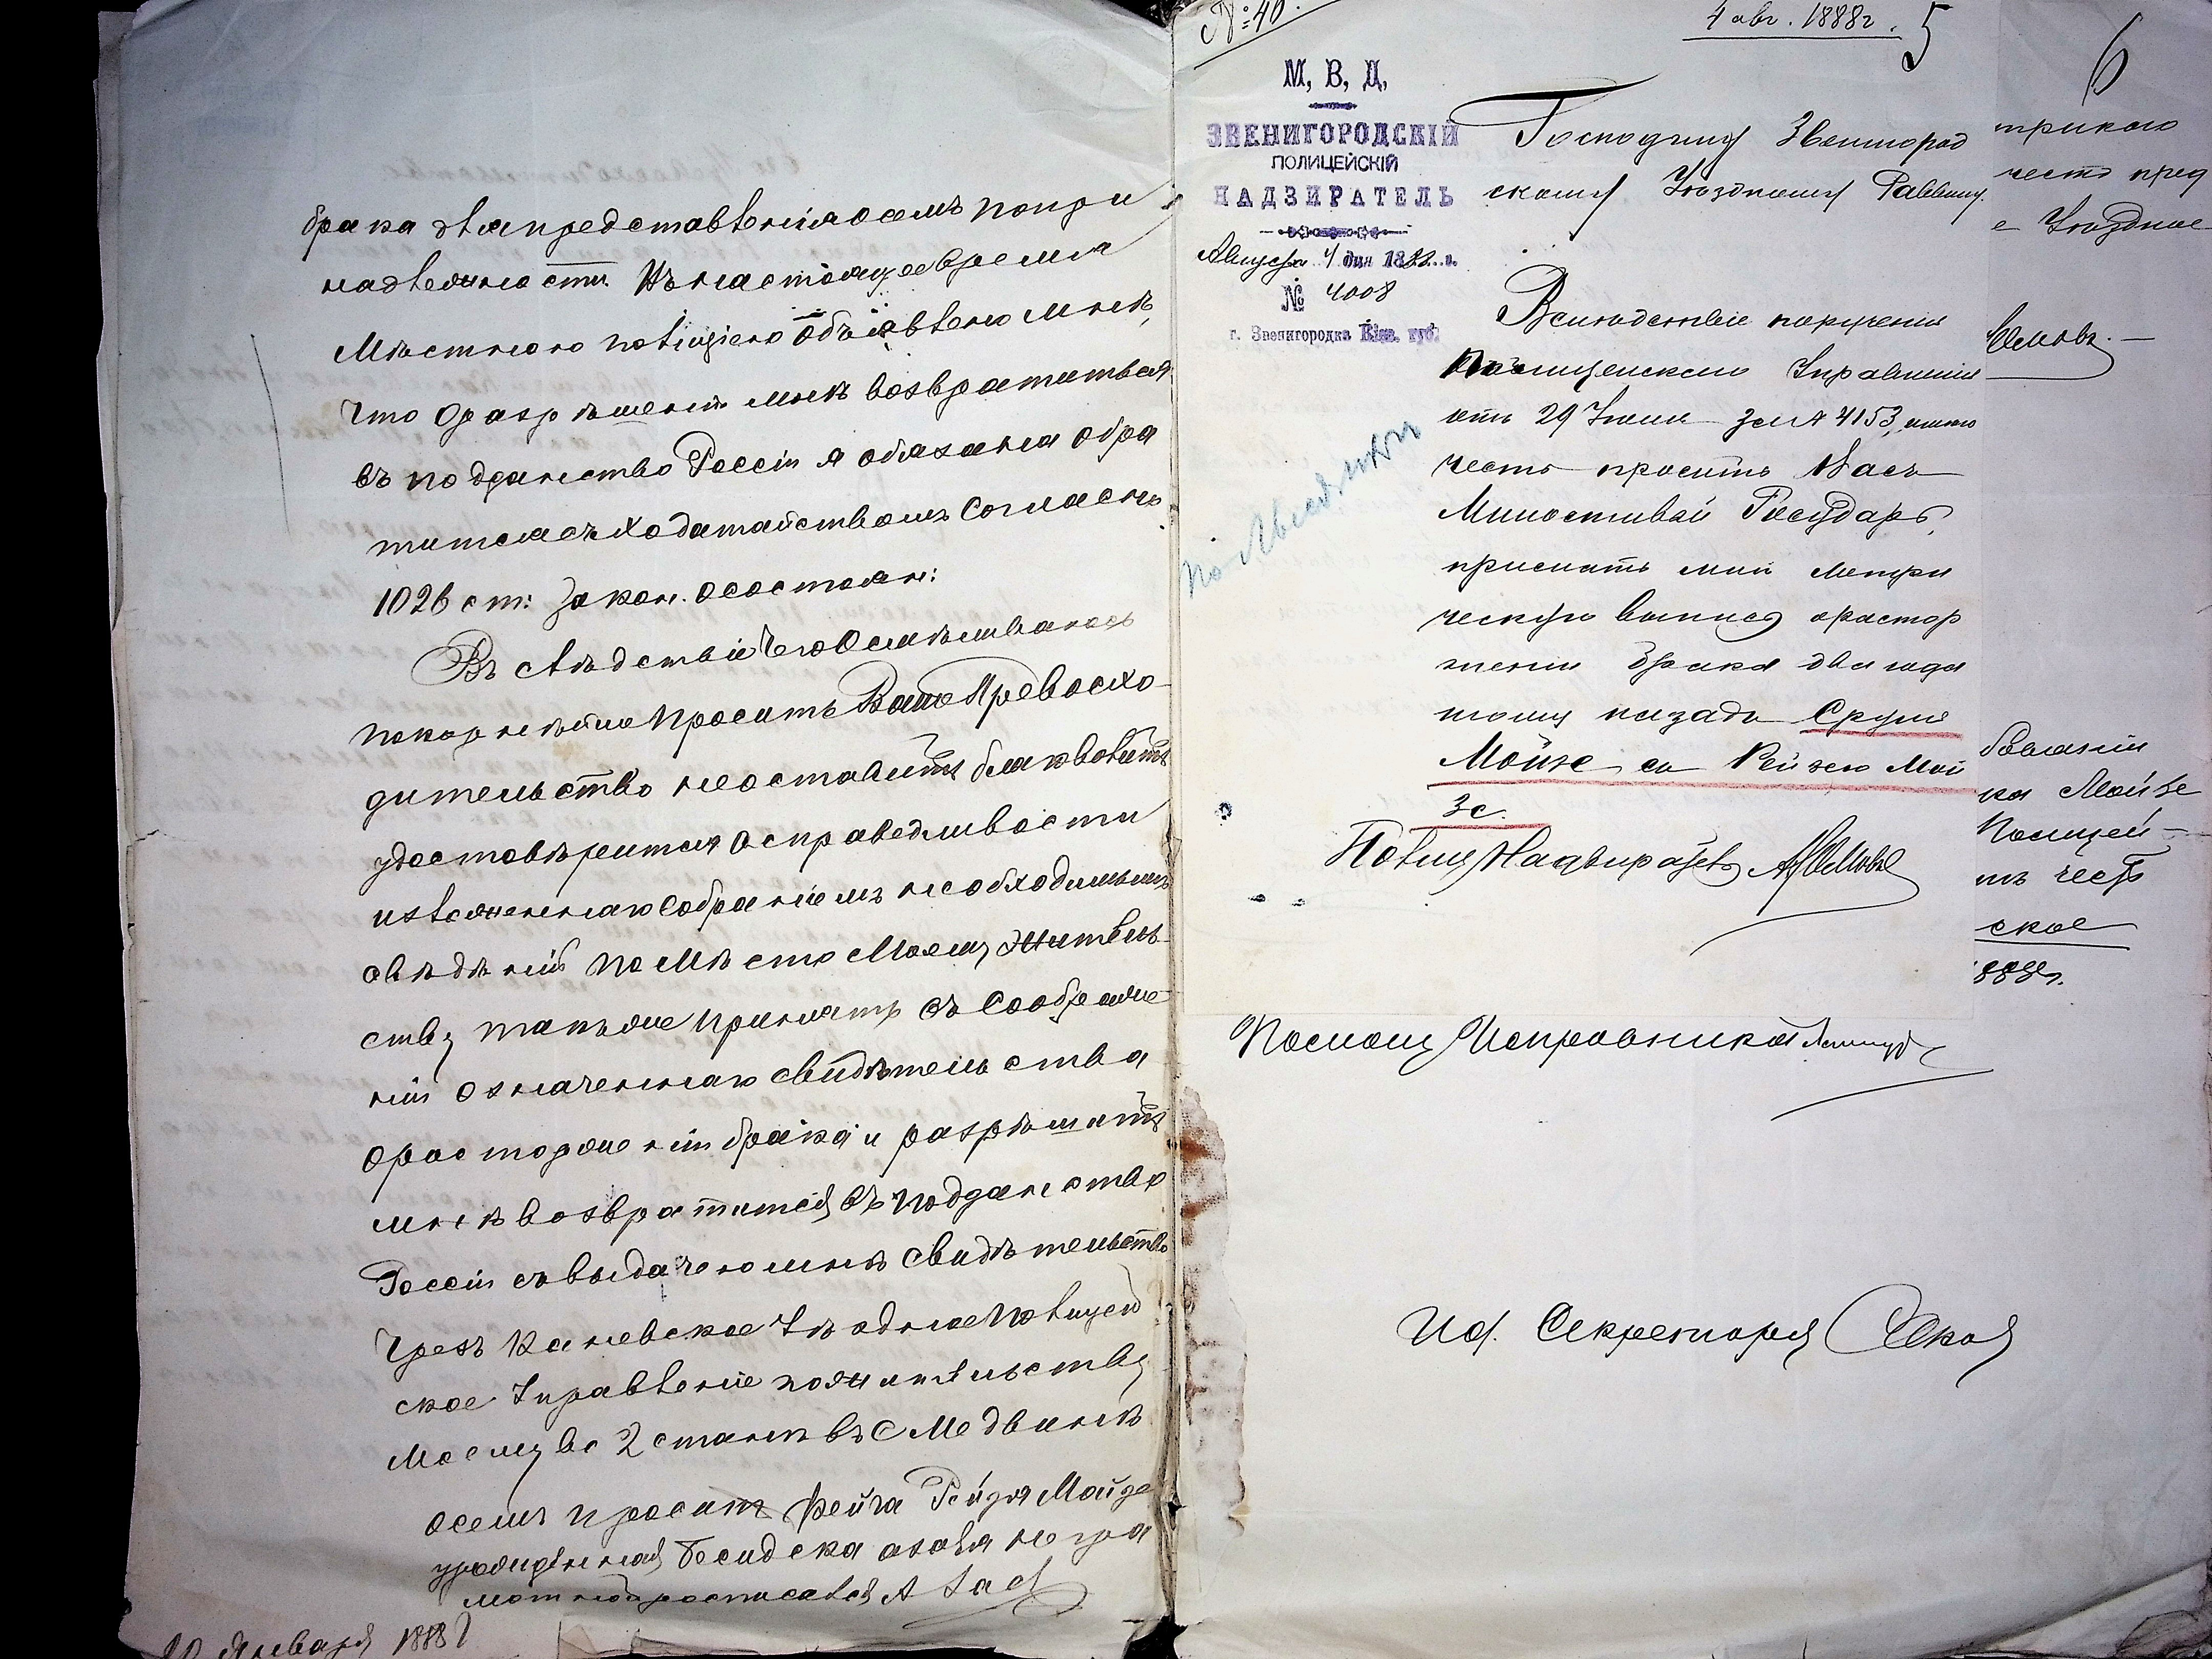 брака для представленія осемъ по при
надлежности. Въ настоящее время
Мѣстною полиціею объявлено мнѣ,
что о разрѣшеніи мнѣ возвратиться
въ подданство Россіи я обязана обра
титься съ ходатайствомъ согласно
1026 ст: Закон. о состоян:
Въ слѣдствіе чего осмѣливаюсь
покорнѣйше просить Ваше Превосхо-
дительство неоставить благоволить
удостовѣрится о справедливости
изложеннаго собраніемъ необходимыхъ
свѣдѣній по мѣсто моему житель-
ству также принять въ соображе-
ніи означеннаго свидѣтельства
о расторженіи брака и разрѣшить
мнѣ возвратится въ подданство
Россіи съ выдачею мнѣ свидѣтельство
чрезъ Каневское Уѣздное Полицей
ское Управленіе по жительству
моему во 2 станѣ въ с Медвинѣ
осемъ просить Фейга Рейзя Мойзе
урожденная Бесидска а за нея негра
мотную росписался А
Января 1888
№ 40.
4 авг. 1888 г.
5
М. В. Д.
ЗВЕНИГОРОДСКІЙ
ПОЛИЦЕЙСКІЙ
НАДЗИРАТЕЛЬ
Августа 4 дня 1888 г.
№ 4008
г. Звенигородка Кіев. губ.
Господину Звенигород
скому Уѣздному Раввину.
Вслѣдствіе порученія
Полицейскаго Управленія
отъ 29 Іюля за № 4153, имѣю
честь просить Васъ
Милостивый Государь,
прислать мнѣ метри
ческую выпись о растор
женіи брака два года
тому назадъ Сруля
Мойзе съ Рейзею Мой
зе.
Полиц Надзиратель
Помощ Исправника
Иоб. Секретаря
6
трикою
честь пред
е Уѣздное
ка Мойзе
Полицей-
ть честь
ское
1888 г.